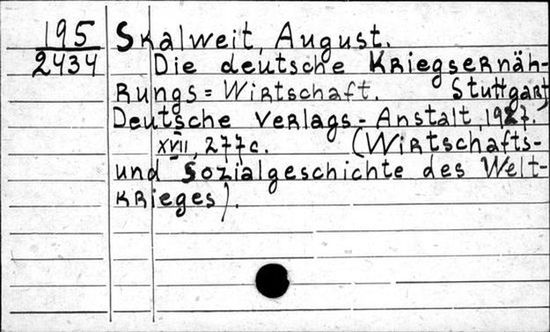 195
2434
Skalweit, August.
Die deutsche Kriegsernäh-
rungs=Wirtschaft. Stuttgart,
Deutsche Verlags-Anstalt, 1927.
XVII, 277c. (Wirtschafts-
und Sozialgeschichte des Welt-
krieges).